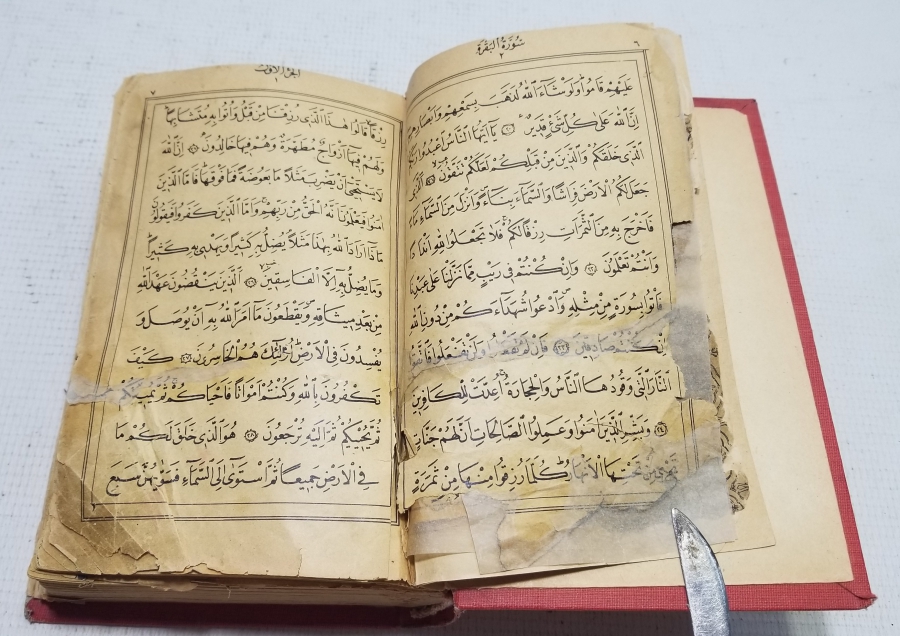 ٦ سُورَةُ الْبَقَرَةِ ٢
عَلَيْهِمْ قَامُوا وَلَوْ شَاءَ اللهُ لَذَهَبَ بِسَمْعِهِمْ وَاَبْصَارِهِمْ
اِنَّ اللهَ عَلٰى كُلِّ شَيْءٍ قَدِيرٌ ۝٢٠ يَا اَيُّهَا النَّاسُ اعْبُدُوا رَبَّكُمُ
الَّذِى خَلَقَكُمْ وَالَّذِينَ مِنْ قَبْلِكُمْ لَعَلَّكُمْ تَتَّقُونَ ۝٢١ اَلَّذِى
جَعَلَ لَكُمُ الْاَرْضَ فِرَاشًا وَالسَّمَاءَ بِنَاءً وَاَنْزَلَ مِنَ السَّمَاءِ مَاءً
فَاَخْرَجَ بِهِ مِنَ الثَّمَرَاتِ رِزْقًا لَكُمْ فَلَا تَجْعَلُوا لِلهِ اَنْدَادًا
وَاَنْتُمْ تَعْلَمُونَ ۝٢٢ وَاِنْ كُنْتُمْ فِى رَيْبٍ مِمَّا نَزَّلْنَا عَلٰى عَبْدِنَا
فَاْتُوا بِسُورَةٍ مِنْ مِثْلِهِ وَادْعُوا شُهَدَاءَكُمْ مِنْ دُونِ اللهِ
اِنْ كُنْتُمْ صَادِقِينَ ۝٢٣ فَاِنْ لَمْ تَفْعَلُوا وَلَنْ تَفْعَلُوا فَاتَّقُوا
النَّارَ الَّتِى وَقُودُهَا النَّاسُ وَالْحِجَارَةُ اُعِدَّتْ لِلْكَافِرِينَ
۝٢٤ وَبَشِّرِ الَّذِينَ اٰمَنُوا وَعَمِلُوا الصَّالِحَاتِ اَنَّ لَهُمْ جَنَّاتٍ
تَجْرِى مِنْ تَحْتِهَا الْاَنْهَارُ كُلَّمَا رُزِقُوا مِنْهَا مِنْ ثَمَرَةٍ
اَلْجُزْءُ الْاَوَّلُ ١ ٧
رِزْقًا قَالُوا هٰذَا الَّذِى رُزِقْنَا مِنْ قَبْلُ وَاُتُوا بِهِ مُتَشَابِهًا
وَلَهُمْ فِيهَا اَزْوَاجٌ مُطَهَّرَةٌ وَهُمْ فِيهَا خَالِدُونَ ۝٢٥ اِنَّ اللهَ
لَا يَسْتَحْيِى اَنْ يَضْرِبَ مَثَلًا مَا بَعُوضَةً فَمَا فَوْقَهَا فَاَمَّا الَّذِينَ
اٰمَنُوا فَيَعْلَمُونَ اَنَّهُ الْحَقُّ مِنْ رَبِّهِمْ وَاَمَّا الَّذِينَ كَفَرُوا فَيَقُولُونَ
مَاذَا اَرَادَ اللهُ بِهٰذَا مَثَلًا يُضِلُّ بِهِ كَثِيرًا وَيَهْدِى بِهِ كَثِيرًا
وَمَا يُضِلُّ بِهِ اِلَّا الْفَاسِقِينَ ۝٢٦ اَلَّذِينَ يَنْقُضُونَ عَهْدَ اللهِ
مِنْ بَعْدِ مِيثَاقِهِ وَيَقْطَعُونَ مَا اَمَرَ اللهُ بِهِ اَنْ يُوصَلَ وَ
يُفْسِدُونَ فِى الْاَرْضِ اُولٰئِكَ هُمُ الْخَاسِرُونَ ۝٢٧ كَيْفَ
تَكْفُرُونَ بِاللهِ وَكُنْتُمْ اَمْوَاتًا فَاَحْيَاكُمْ ثُمَّ يُمِيتُكُمْ
ثُمَّ يُحْيِيكُمْ ثُمَّ اِلَيْهِ تُرْجَعُونَ ۝٢٨ هُوَ الَّذِى خَلَقَ لَكُمْ مَا
فِى الْاَرْضِ جَمِيعًا ثُمَّ اسْتَوٰى اِلَى السَّمَاءِ فَسَوّٰيهُنَّ سَبْعَ